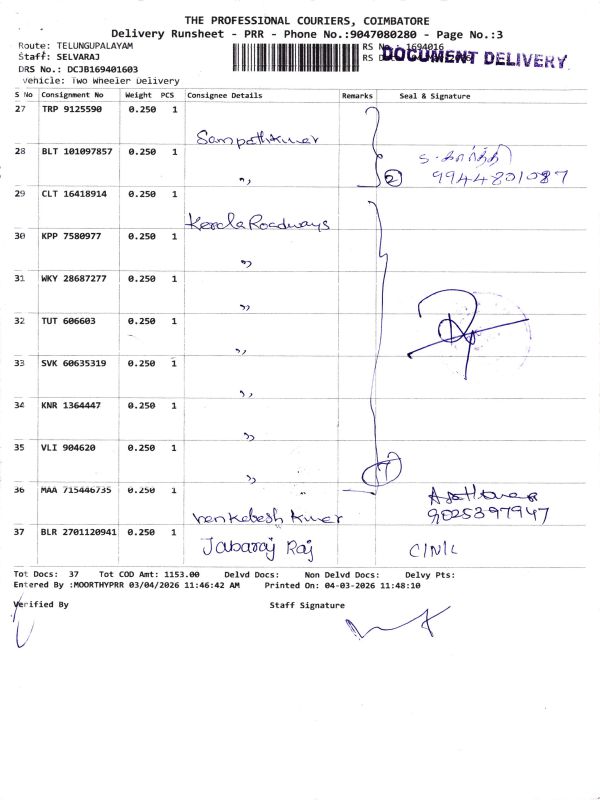 THE PROFESSIONAL COURIERS, COIMBATORE
Delivery Runsheet - PRR - Phone No.:9047080280 - Page No.:3
Route: TELUNGUPALAYAM RS No.: 1694016
Staff: SELVARAJ RS DOCUMENT DELIVERY
DRS No.: DCJB169401603
Vehicle: Two Wheeler Delivery
S No Consignment No Weight PCS Consignee Details Remarks Seal & Signature
27 TRP 9125590 0.250 1 Sampathkumar
28 BLT 101097857 0.250 1 ,, 2 S. கார்த்தி
9944801087
29 CLT 16418914 0.250 1 Kerala Roadways
30 KPP 7580977 0.250 1 ,,
31 WKY 28687277 0.250 1 ,,
32 TUT 606603 0.250 1 ,,
33 SVK 60635319 0.250 1 ,,
34 KNR 1364447 0.250 1 ,,
35 VLI 904620 0.250 1 ,, 7
36 MAA 715446735 0.250 1 venkebesh kumer
9025397947
37 BLR 2701120941 0.250 1 Jabaraj Raj
Tot Docs: 37 Tot COD Amt: 1153.00 Delvd Docs: Non Delvd Docs: Delvy Pts:
Entered By :MOORTHYPRR 03/04/2026 11:46:42 AM Printed On: 04-03-2026 11:48:10
Verified By Staff Signature